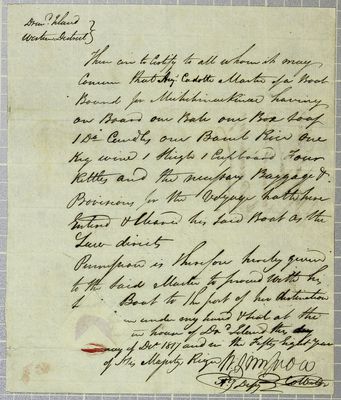 Drumd Island
Western District
These are to Certify to all whom it may
Concern that Cadotte Master of a Boat
Bound for Michilimackinac having
on Board one Bale one Box Soap
1 Do Candles one Barrel Rice one
Keg wine 1 Sleigh 1 Cupboard Four
Kettles and the necessary Baggage &
Provisions for the Voyage hath here
Entered & Cleared his said Boat as the
Law directs
Permission is therefore hereby given
to the said Master to proceed with his
Boat to the port of his destination
under my hand & seal at the
house of Dd Island this day
of 1817 and in the Fifty Eight year
of His Majestys Reign
Collector